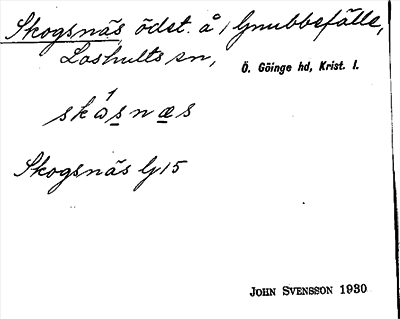 Skogsnäs, ödst. å 1 Gnubbefälle,
Loshults sn,
Ö. Göinge hd, Krist. l.
Skogsnäs Gj 15
JOHN SVENSSON 1930